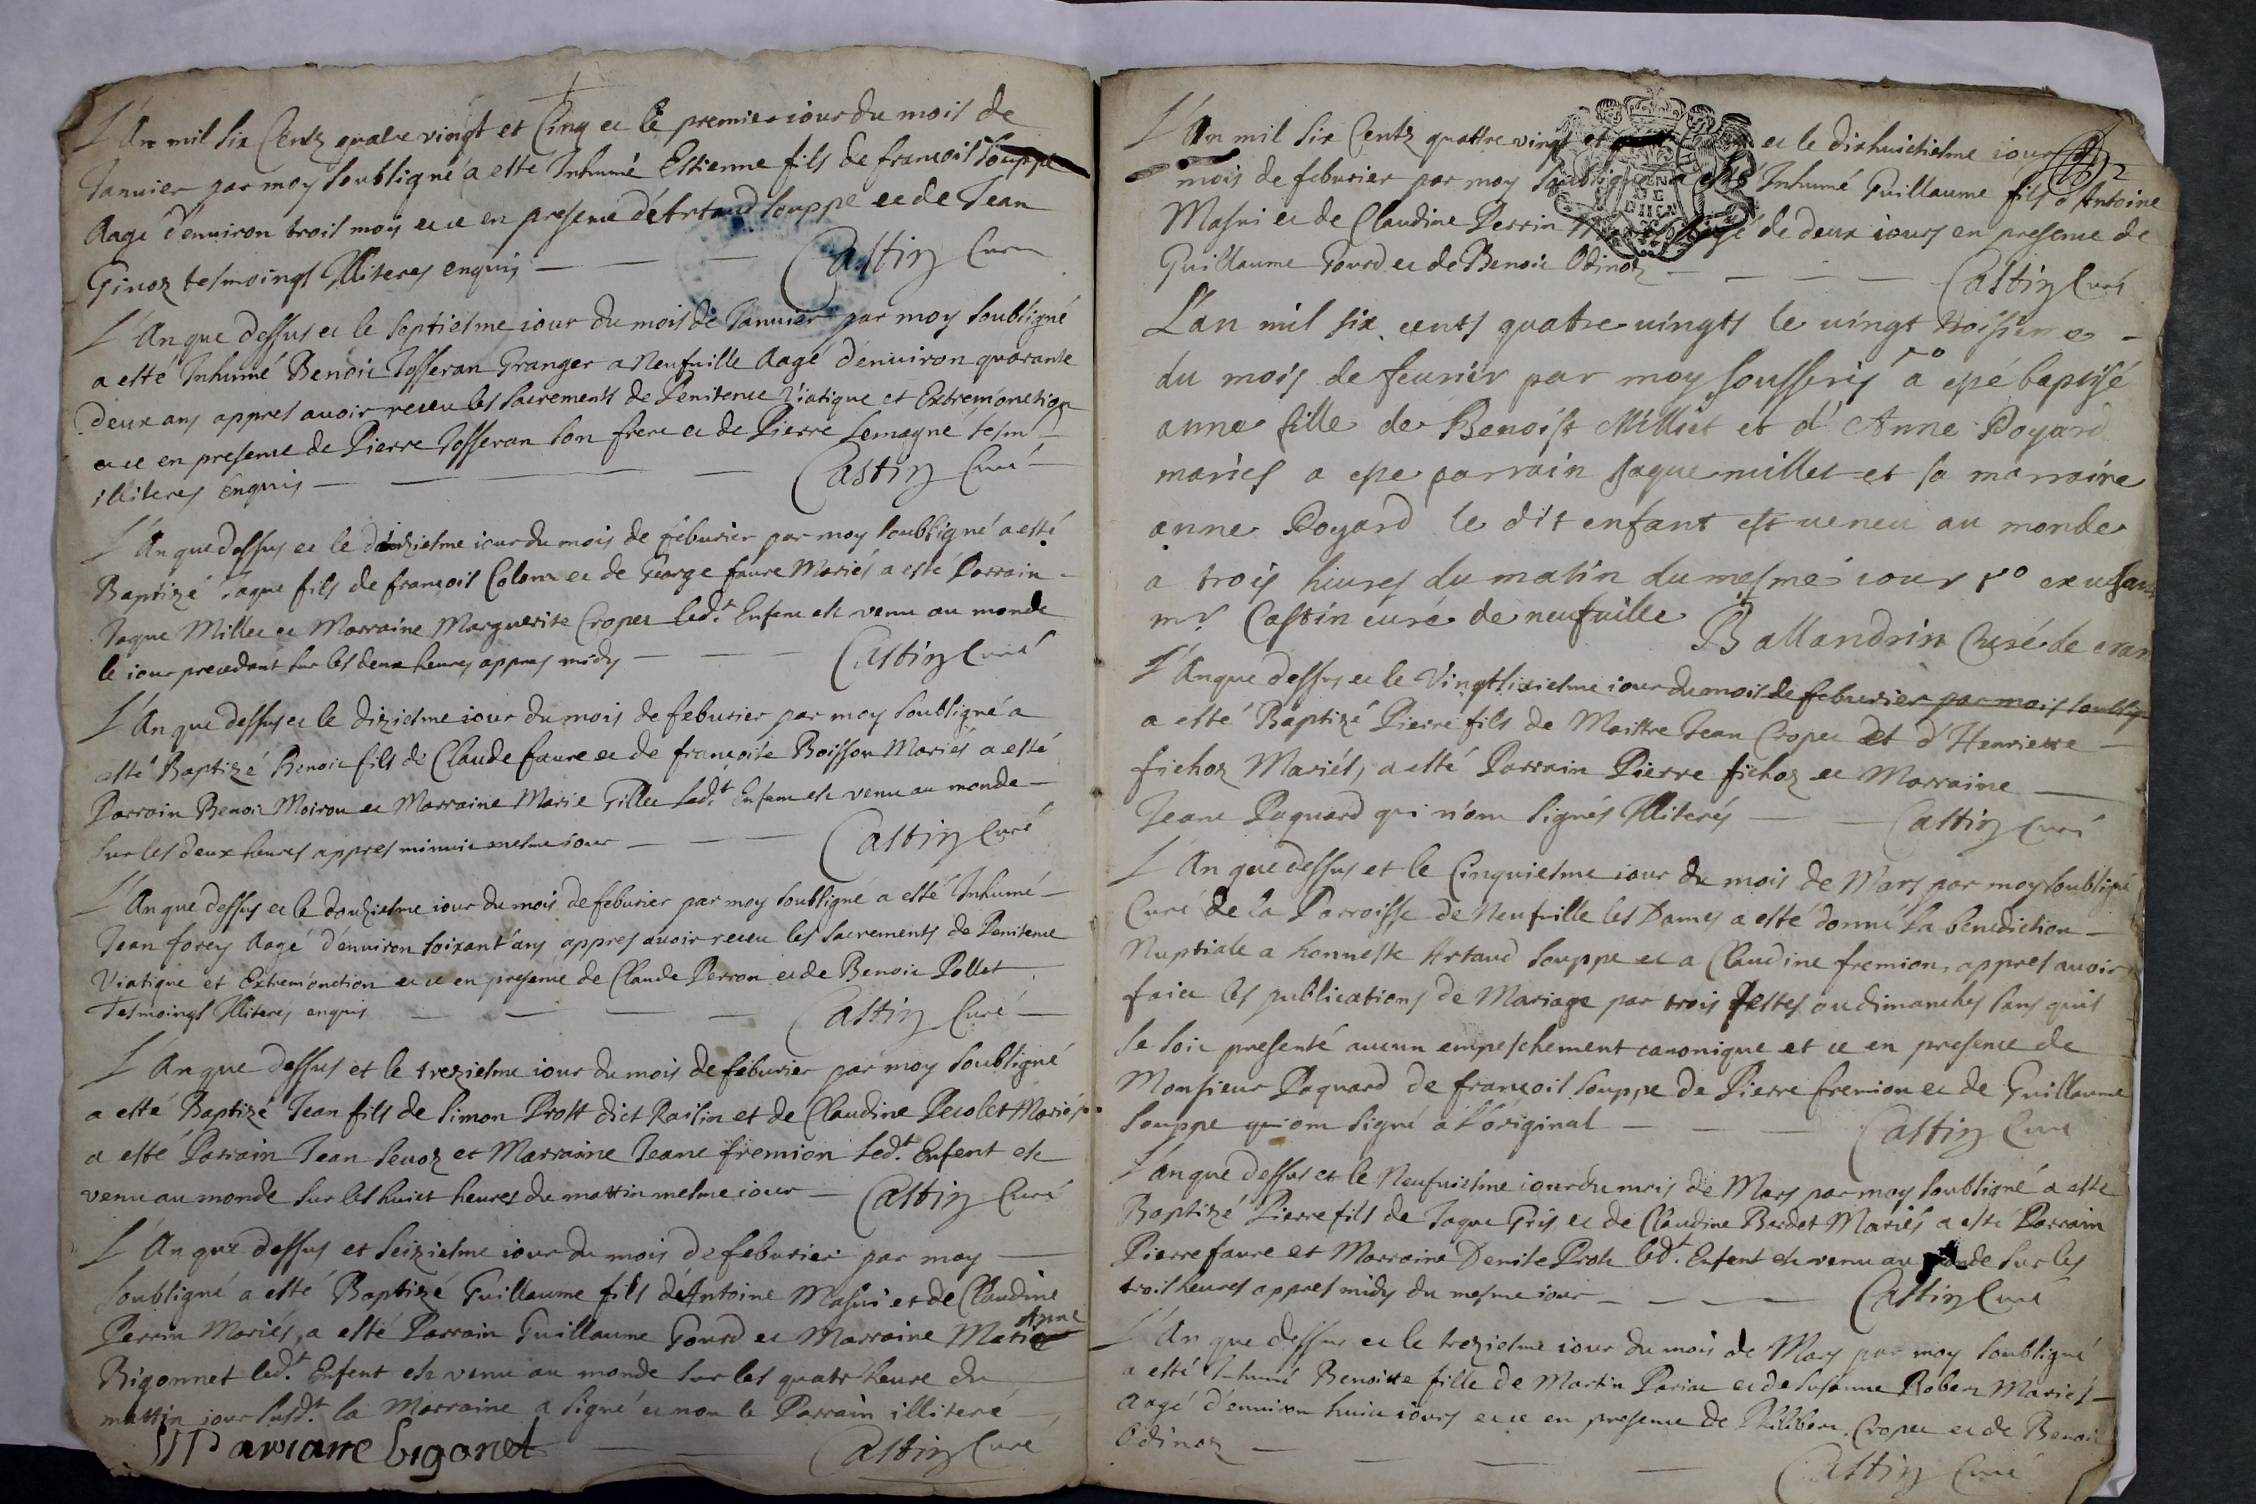 L'An mil six Centz quatre vingt et Cinq et le premier iour du mois de
Ianuier par moy soubsigné a esté Inhumé Estienne fils de francois Souppe
Aagé d'enuiron trois mois et ce en presence d'Artaud Souppe et de Jean
Ginoz tesmoings Illiteres enquis Castin Curé
L'An que dessus et le Septiesme iour du mois de Ianuier par moy soubsigné
a esté Inhumé Benoit Josseran Granger a Neufuille Aagé d'enuiron quarante
deux ans appres auoir receu les sacrements de Penitence Viatique et Extremonction
et ce en presence de Pierre Josseran son frere et de Pierre Lemagne tesm
illiteres Enquis Castin Curé
L'An que dessus et le iour du mois de feburier par moy soubsigné a esté
Baptizé Jaque fils de francois Colomb et de George faure Mariés a esté Parrain
Jaque Millet et Marraine Marguerite Cropet led.t Enfent est venu au monde
le iour precedant sur les deux heures appres midy Castin Curé
L'An que dessus et le dixiesme iour du mois de feburier par moy soubsigné a
esté Baptizé Benoit fils de Claude faure et de francoise Boisson Mariés a esté
Parrain Benoit Moirou et Marraine Marie Gillet Led.t Enfent est venu au monde
sur les deux heures appres minuit mesme iour Castin Curé
L'An que dessus et le douziesme iour du mois de feburier par moy soubsigné a esté Inhumé
Jean forey Aagé d'enuiron soixant'ans appres auoir receu les Sacrements de Penitence
Viatique et Extremonction et ce en presence de Claude Perron et de Benoit Pollet
Tesmoings Illiteres enquis Castin Curé
L'An que dessus et le treziesme iour du mois de feburier par moy soubsigné
a esté Baptizé Jean fils de Simon Prost dict Railin et de Claudine Pecolet Mariés
a esté Parrain Jean Seuoz et Marraine Jeane fremion Led.t Enfent est
venu au monde sur les huict heures du mattin mesme iour Castin Curé
L'An que dessus et seiziesme iour du mois de feburier par moy
soubsigné a esté Baptizé Guillaume fils d'Antoine Masui et de Claudine
Perrin Mariés, a esté Parrain Guillaume Gourd et Marraine Marie Anne
Bigonnet led.t Enfent est venu au monde sur les quatr'heure du
mattin iour susd.t la Marraine a signé et non le Parrain illitere
Mariane bigonet Castin Curé
L'An mil six Centz quattre vingt et et le dixhuictiesme iour
mois de feburier par moy esté Inhumé Guillaume fils d'Antoine
Masui et de Claudine Perrin Aagé de deux iours en presence de
Guillaume Gourd et de Benoit Odinoz Castin Curé
L'an mil six cents quatre uingts le uingt troissieme
du mois de feurier par moy soussris a esté baptisé
anne fille de Benoist Milliet et d'Anne Poyard
maries a este parrain Jaque millet et sa marraine
anne Poyard le dit enfant est ueneu au monde
a trois hiures du matin du mesme iour
mr Castin curé de neufuille Ballandrin Curé de cran
L'An que dessus et le Vingtsixiesme iour du mois de feburier par mois soubsig
a esté Baptizé Pierre fils de Maistre Jean Cropet et d'Henriette
fichoz Mariés, a esté Parrain Pierre fichoz et Marraine
Jeane Paquard qui n'ont signés Illiterés Castin Curé
L'An que dessus et le Cinquiesme iour du mois de Mars par moy soubsigné
Curé de la Parroisse de Neufuille les Dames a esté donné la benediction
Nuptiale a honneste Artaud Souppe et a Claudine fremion, appres auoir
faict les publications de Mariage par trois festes ou dimanches sans quil
se soit presenté aucun empeschement canonique et ce en presence de
Monsieur Paquard de francois Souppe de Pierre fremion et de Guillaume
Souppe qui ont signé a l'original Castin Curé
L'an que dessus et le Neufuiesme iour du mois de Mars par moy soubsigné a esté
Baptizé Pierre fils de Jaque Gris et de Claudine Bardet Mariés a esté Parrain
Pierre faure et Marraine Denise Prost led.t Enfent est venu au monde sur les
trois heures appres midy du mesme iour Castin Curé
L'An que dessus et le trezieme iour du mois de Mars par moy soubsigné
a esté Inhumé Benoitte fille de Martin Pariat et de Susanne Robert Mariés
Aagé d'enuiron huict iours et ce en presence de Philibert Cropet et de Benoit
Odinoz Castin Curé